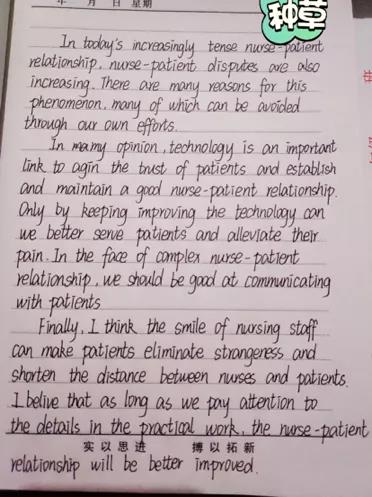 年 月 日 星期
种草
In today's increasingly tense nurse-patient
relationship, nurse-patient disputes are also
increasing. There are many reasons for this
phenomenon, many of which can be avoided
through our own efforts.
In mamy opinion, technology is an important
link to agin the trust of patients and establish
and maintain a good nurse-patient relationship.
Only by keeping improving the technology can
we better serve patients and alleviate their
pain. In the face of complex nurse-patient
relationship, we should be good at communicating
with patients
Finally, I think the smile of nursing staff
can make patients eliminate strangeness and
shorten the distance between nurses and patients.
I belive that as long as we pay attention to
the details in the practical work, the nurse-patient
实以思进 搏以拓新
relationship will be better improved.